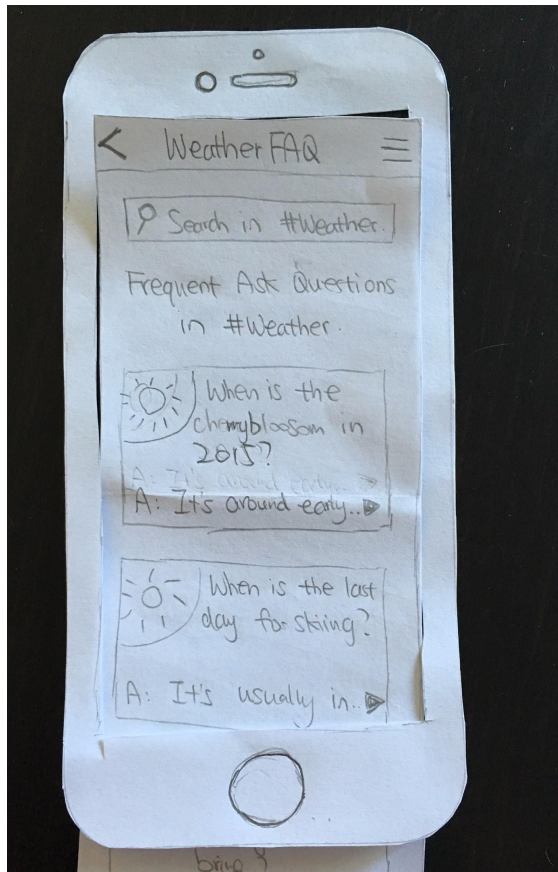 Weather FAQ
Search in #Weather.
Frequent Ask Questions
in #Weather.
When is the
cherrybloosom in
2015?
A: It's around early..
A: It's around early..
When is the last
day for skiing?
A: It's usually in..
bring